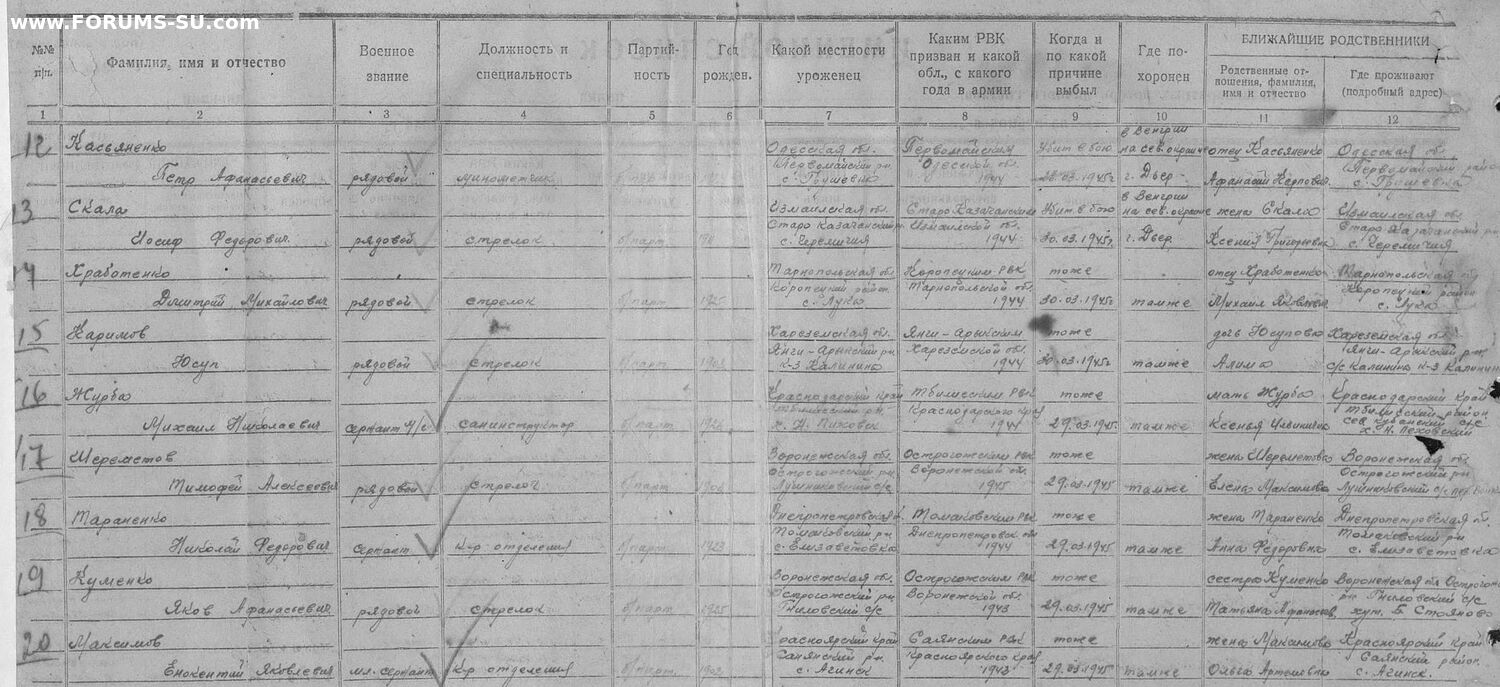 www.FORUMS-SU.com
№№ п/п.
Фамилия, имя и отчество
Военное звание
Должность и специальность
Партий-ность
Год рожден.
Какой местности уроженец
Каким РВК призван и какой обл., с какого года в армии
Когда и по какой причине выбыл
Где по-хоронен
БЛИЖАЙШИЕ РОДСТВЕННИКИ
Родственные от-ношения, фамилия, имя и отчество
Где проживают (подробный адрес)
1 2 3 4 5 6 7 8 9 10 11 12
в Венгрии
12 Касьяненко Одесская обл. Первомайским Убит в бою на сев. окраине отец Касьяненко Одесская обл.
Первомайский рн. Одесской обл. Первомайский район
Петр Афанасьевич рядовой минометчик с. Грушевка 1944 28.03.1945г г. Двер Афанасий Карпович с. Грушевка
в Венгрии
13 Скала Измаилская обл. Старо Казачанским Убит в бою на сев. окраине жена Скала Измаилская обл.
Старо Казачанский р. Измаилской обл. Старо Казачанский рн
Иосиф Федорович рядовой стрелок б/парт с. Черемичия 1944 30.03.1945г. г. Двер Ксения Григорьевна с. Черемичия
14 Хработенко Тарнопольская обл. Коропецким РВК тоже отец Хработенко Тарнопольская обл
Коропецкий район Тарнопольской обл. Коропецкий район
Дмитрий Михайлович рядовой стрелок б/парт 1925 с. Лука 1944 30.03.1945г тамже Михаил Яковлевич с. Лука
15 Каримов Хареземская обл. Янги-Арыкским тоже дочь Юсупова Хареземская обл.
Янги-Арыкский рн. Хареземской обл. Янги-Арыкский р-н
Юсуп рядовой стрелок б/парт к-з Калинина 1944 30.03.1945г тамже Алима с/с Калинина к-з Калинин
16 Журба Краснодарский край Тбилисским РВК тоже мать Журба Краснодарский край
Тбилисский рн. Краснодарского края Тбилисский район
Михаил Николаевич сержант м/с санинструктор б/парт 1926 х. Н. 1944 29.03.1945г. тамже Ксенья х. Н.
17 Шереметов Воронежская обл. Острогожским РВК тоже жена Шереметова Воронежская обл.
Острогожский рн. Воронежской обл. Острогожский рн
Тимофей Алексеевич рядовой стрелок б/парт 1906 Лушниковский с/с 1943 29.03.1945г тамже Елена Максимовна Лушниковский с/с
18 Тараненко Днепропетровская о. Томаковским РВК тоже жена Тараненко Днепропетровская о.
Томаковский рн Днепропетровск обл Томаковский рн
Николай Федорович сержант к-р отделения б/парт 1923 с. Елизаветовка 1944 29.03.1945 тамже Анна Федоровна с. Елизаветовка
19 Куменко Воронежская обл. Острогожским РВК тоже сестра Куменко Воронежская обл Острогож
Острогожский рн. Воронежской обл. рн Гниловский с/с
Яков Афанасьевич рядовой стрелок б/парт 1925 Гниловский с/с 1943 29.03.1945 тамже Татьяна Афанасев хут. Б Стояново
20 Максимов Красноярский край Саянским РВК тоже жена Максимова Красноярский край
Саянский рн. Красноярского края Саянский район
Енокентий Яковлевич мл. сержант к-р отделения б/парт с. Агинск 1942 29.03.1945 тамже Ольга Артемовна с. Агинск.